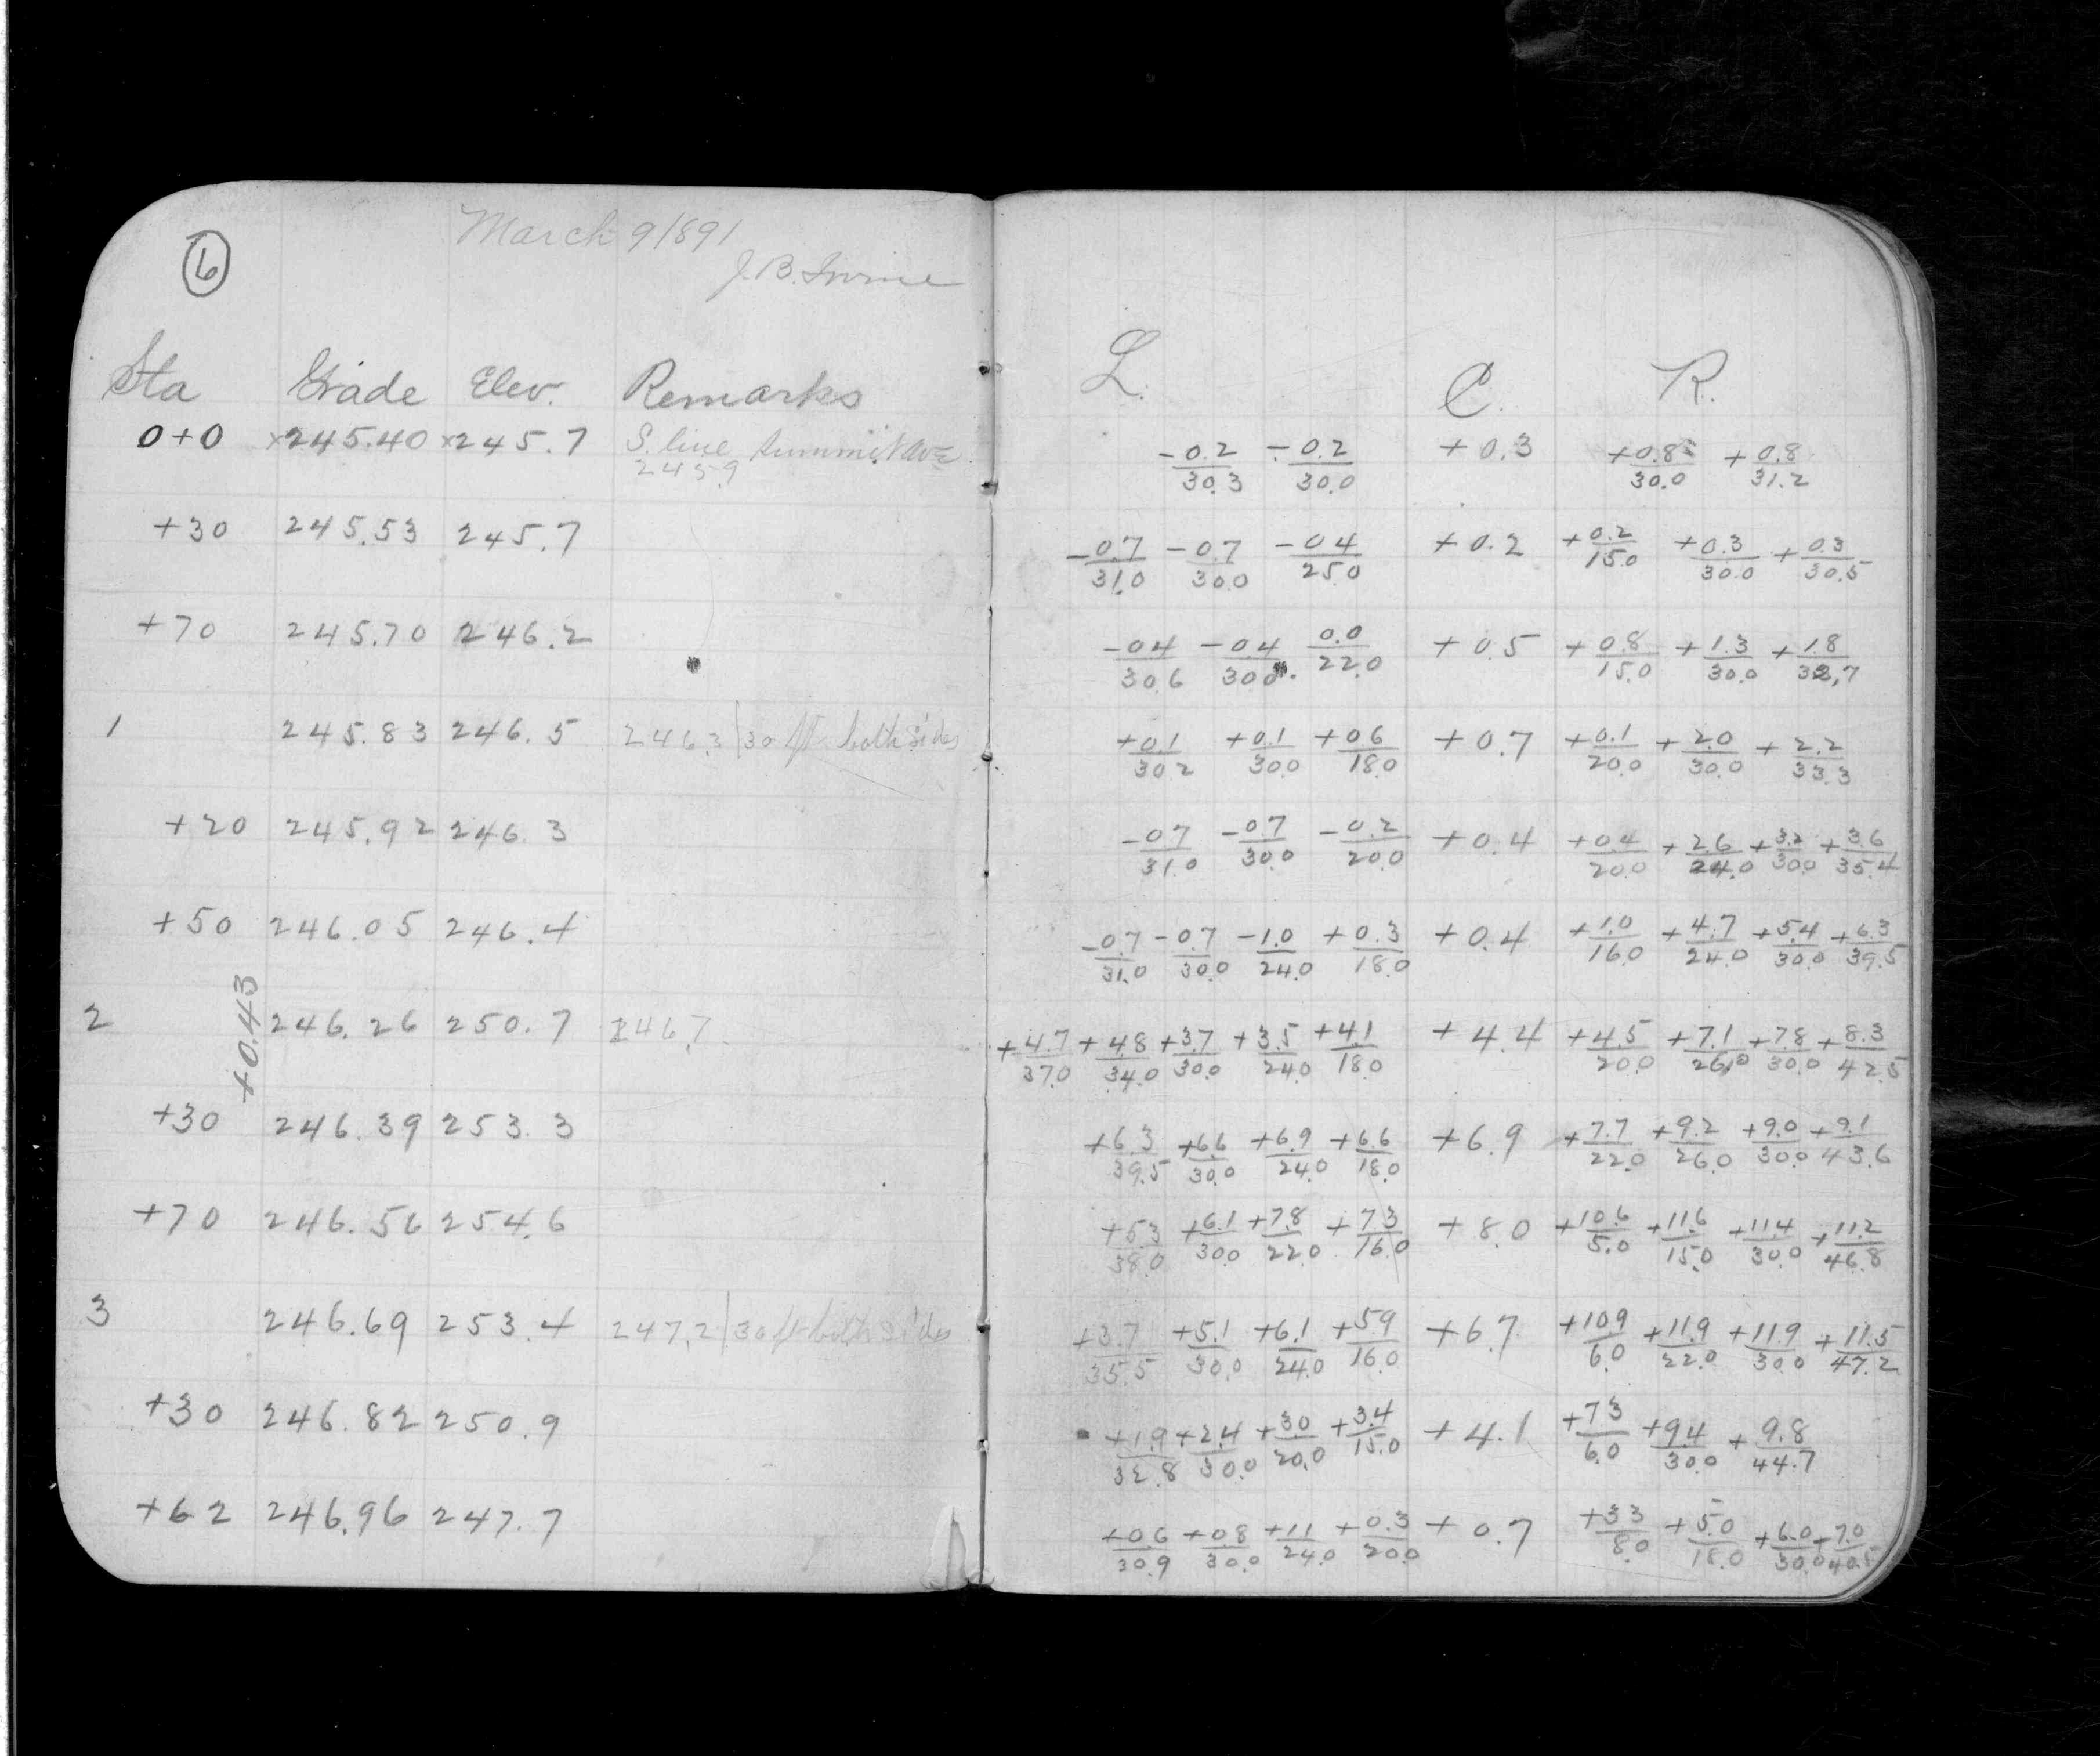 6
March 9 1891
J. B. Irvine
Sta Grade Elev. Remarks L. C. R.
0+0 ×245.40 ×245.7 S. line Summit Ave -0.2/30.3 -0.2/30.0 +0.3 +0.8/30.0 +0.8/31.2
245.9
+30 245.53 245.7 -0.7/31.0 -0.7/30.0 -0.4/25.0 +0.2 +0.2/15.0 +0.3/30.0 +0.3/30.5
+70 245.70 246.2 -0.4/30.6 -0.4/30.0 0.0/22.0 +0.5 +0.8/15.0 +1.3/30.0 +1.8/32.7
1 245.83 246.5 246.3 | 30 ft both sides +0.1/30.2 +0.1/30.0 +0.6/18.0 +0.7 +0.1/20.0 +2.0/30.0 +2.2/33.3
+20 245.92 246.3 -0.7/31.0 -0.7/30.0 -0.2/20.0 +0.4 +0.4/20.0 +2.6/24.0 +3.2/30.0 +3.6/35.4
+50 246.05 246.4 -0.7/31.0 -0.7/30.0 -1.0/24.0 +0.3/18.0 +0.4 +1.0/16.0 +4.7/24.0 +5.4/30.0 +6.3/39.5
+0.43
2 246.26 250.7 246.7 +4.7/37.0 +4.8/34.0 +3.7/30.0 +3.5/24.0 +4.1/18.0 +4.4 +4.5/20.0 +7.1/26.0 +7.8/30.0 +8.3/42.5
+30 246.39 253.3 +6.3/39.5 +6.6/30.0 +6.9/24.0 +6.6/18.0 +6.9 +7.7/22.0 +9.2/26.0 +9.0/30.0 +9.1/43.6
+70 246.56 254.6 +5.3/38.0 +6.1/30.0 +7.8/22.0 +7.3/16.0 +8.0 +10.6/5.0 +11.6/15.0 +11.4/30.0 +11.2/46.8
3 246.69 253.4 247.2 | 30 ft both sides +3.7/35.5 +5.1/30.0 +6.1/24.0 +5.9/16.0 +6.7 +10.9/6.0 +11.9/22.0 +11.9/30.0 +11.5/47.2
+30 246.82 250.9 +1.9/32.8 +2.4/30.0 +3.0/20.0 +3.4/15.0 +4.1 +7.3/6.0 +9.4/30.0 +9.8/44.7
+62 246.96 247.7 +0.6/30.9 +0.8/30.0 +1.1/24.0 +0.3/20.0 +0.7 +3.3/8.0 +5.0/18.0 +6.0/30.0 +7.0/40.5